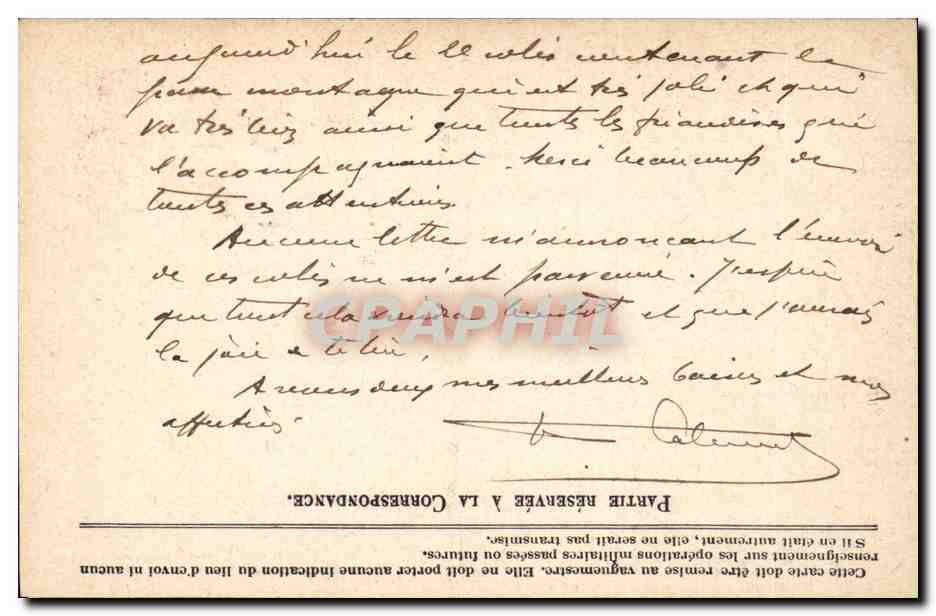 aujourd'hui le colis contenant le
passe montagne qui est très joli et qui
va très bien ainsi que toutes les friandises qui
l'accompagnaient. Merci beaucoup de
toutes ces attentions.
Aucune lettre m'annonçant l'envoi
de ces colis ne m'est parvenue. J'espère
que tout cela viendra bientôt et que j'aurai
la joie de te lire.
A vous deux mes meilleurs baisers et mes
affections
CPAPHIL
PARTIE RÉSERVÉE À LA CORRESPONDANCE.
Cette carte doit être remise au vaguemestre. Elle ne doit porter aucune indication du lieu d'envoi ni aucun
renseignement sur les opérations militaires passées ou futures.
S'il en était autrement, elle ne serait pas transmise.